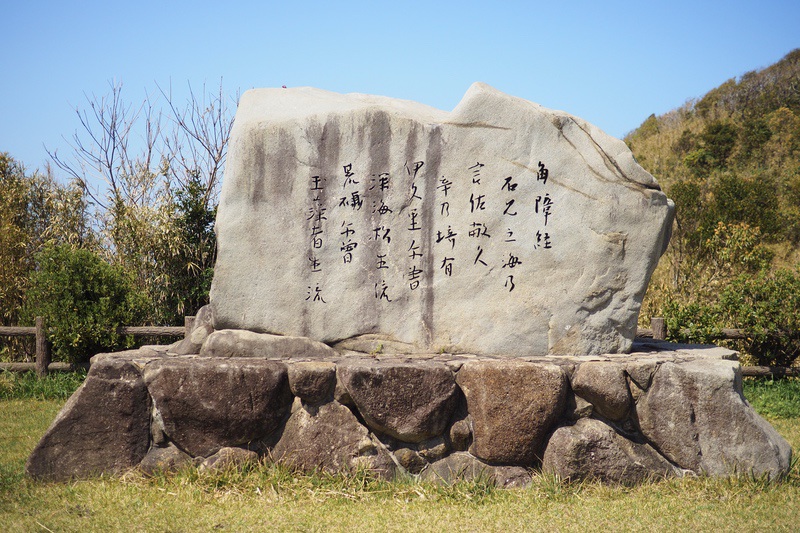 角障経
石見之海乃
言佐敝久
辛乃埼有
伊久里尓曽
深海松生流
荒礒尓曽
玉藻者生流